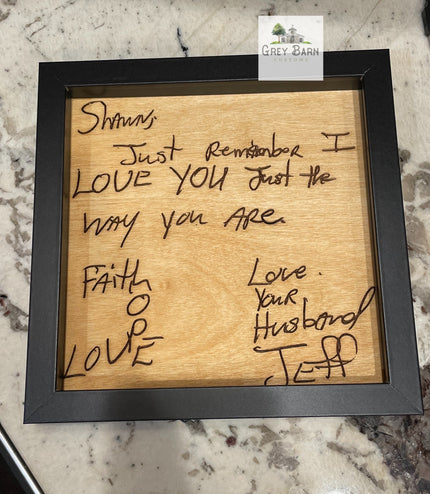 GREY BARN
CUSTOMS
Shawn,
Just Remember I
LOVE YOU Just the
WAY you ARe.
FAith
O
P
LOVE
Love.
YOUR
Husband
Jeff